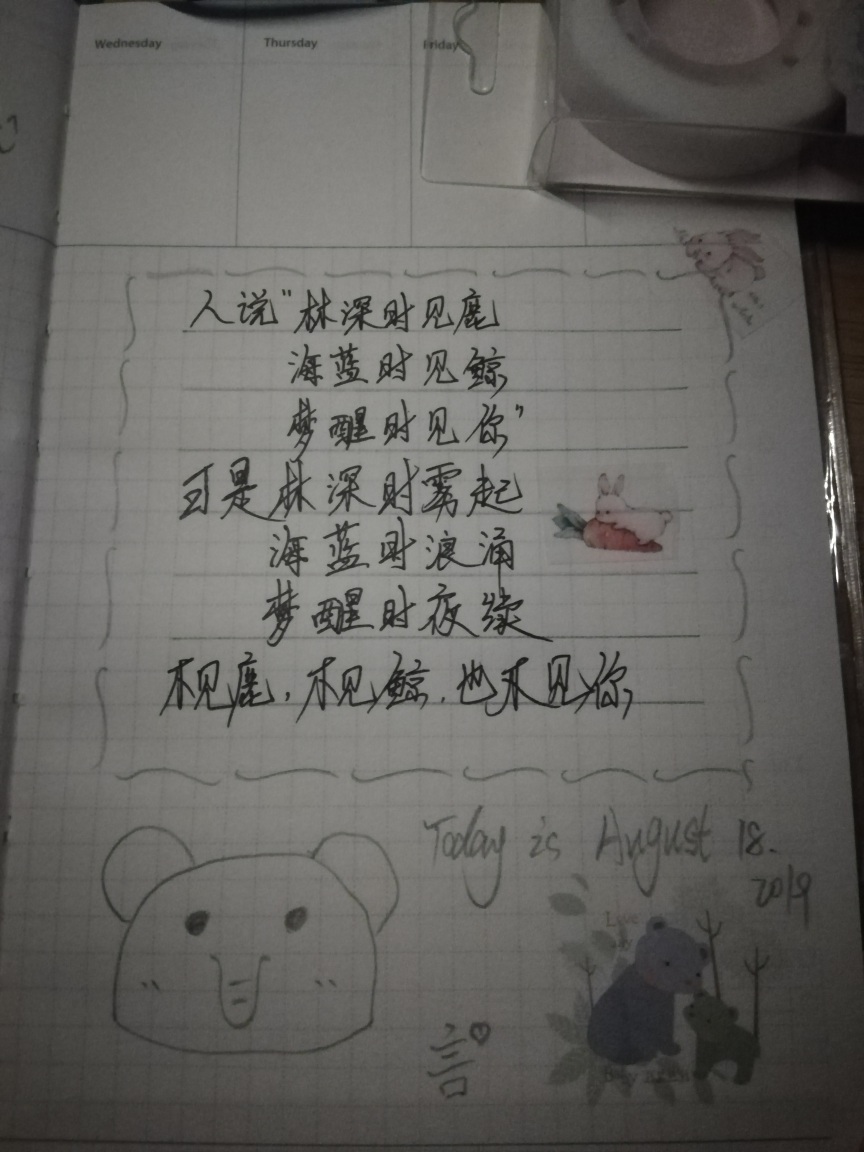 Wednesday Thursday Friday
人说"林深时见鹿
海蓝时见鲸
梦醒时见你"
可是林深时雾起
海蓝时浪涌
梦醒时夜续
不见鹿,不见鲸,也不见你
Today is August 18.
2019
Love
言